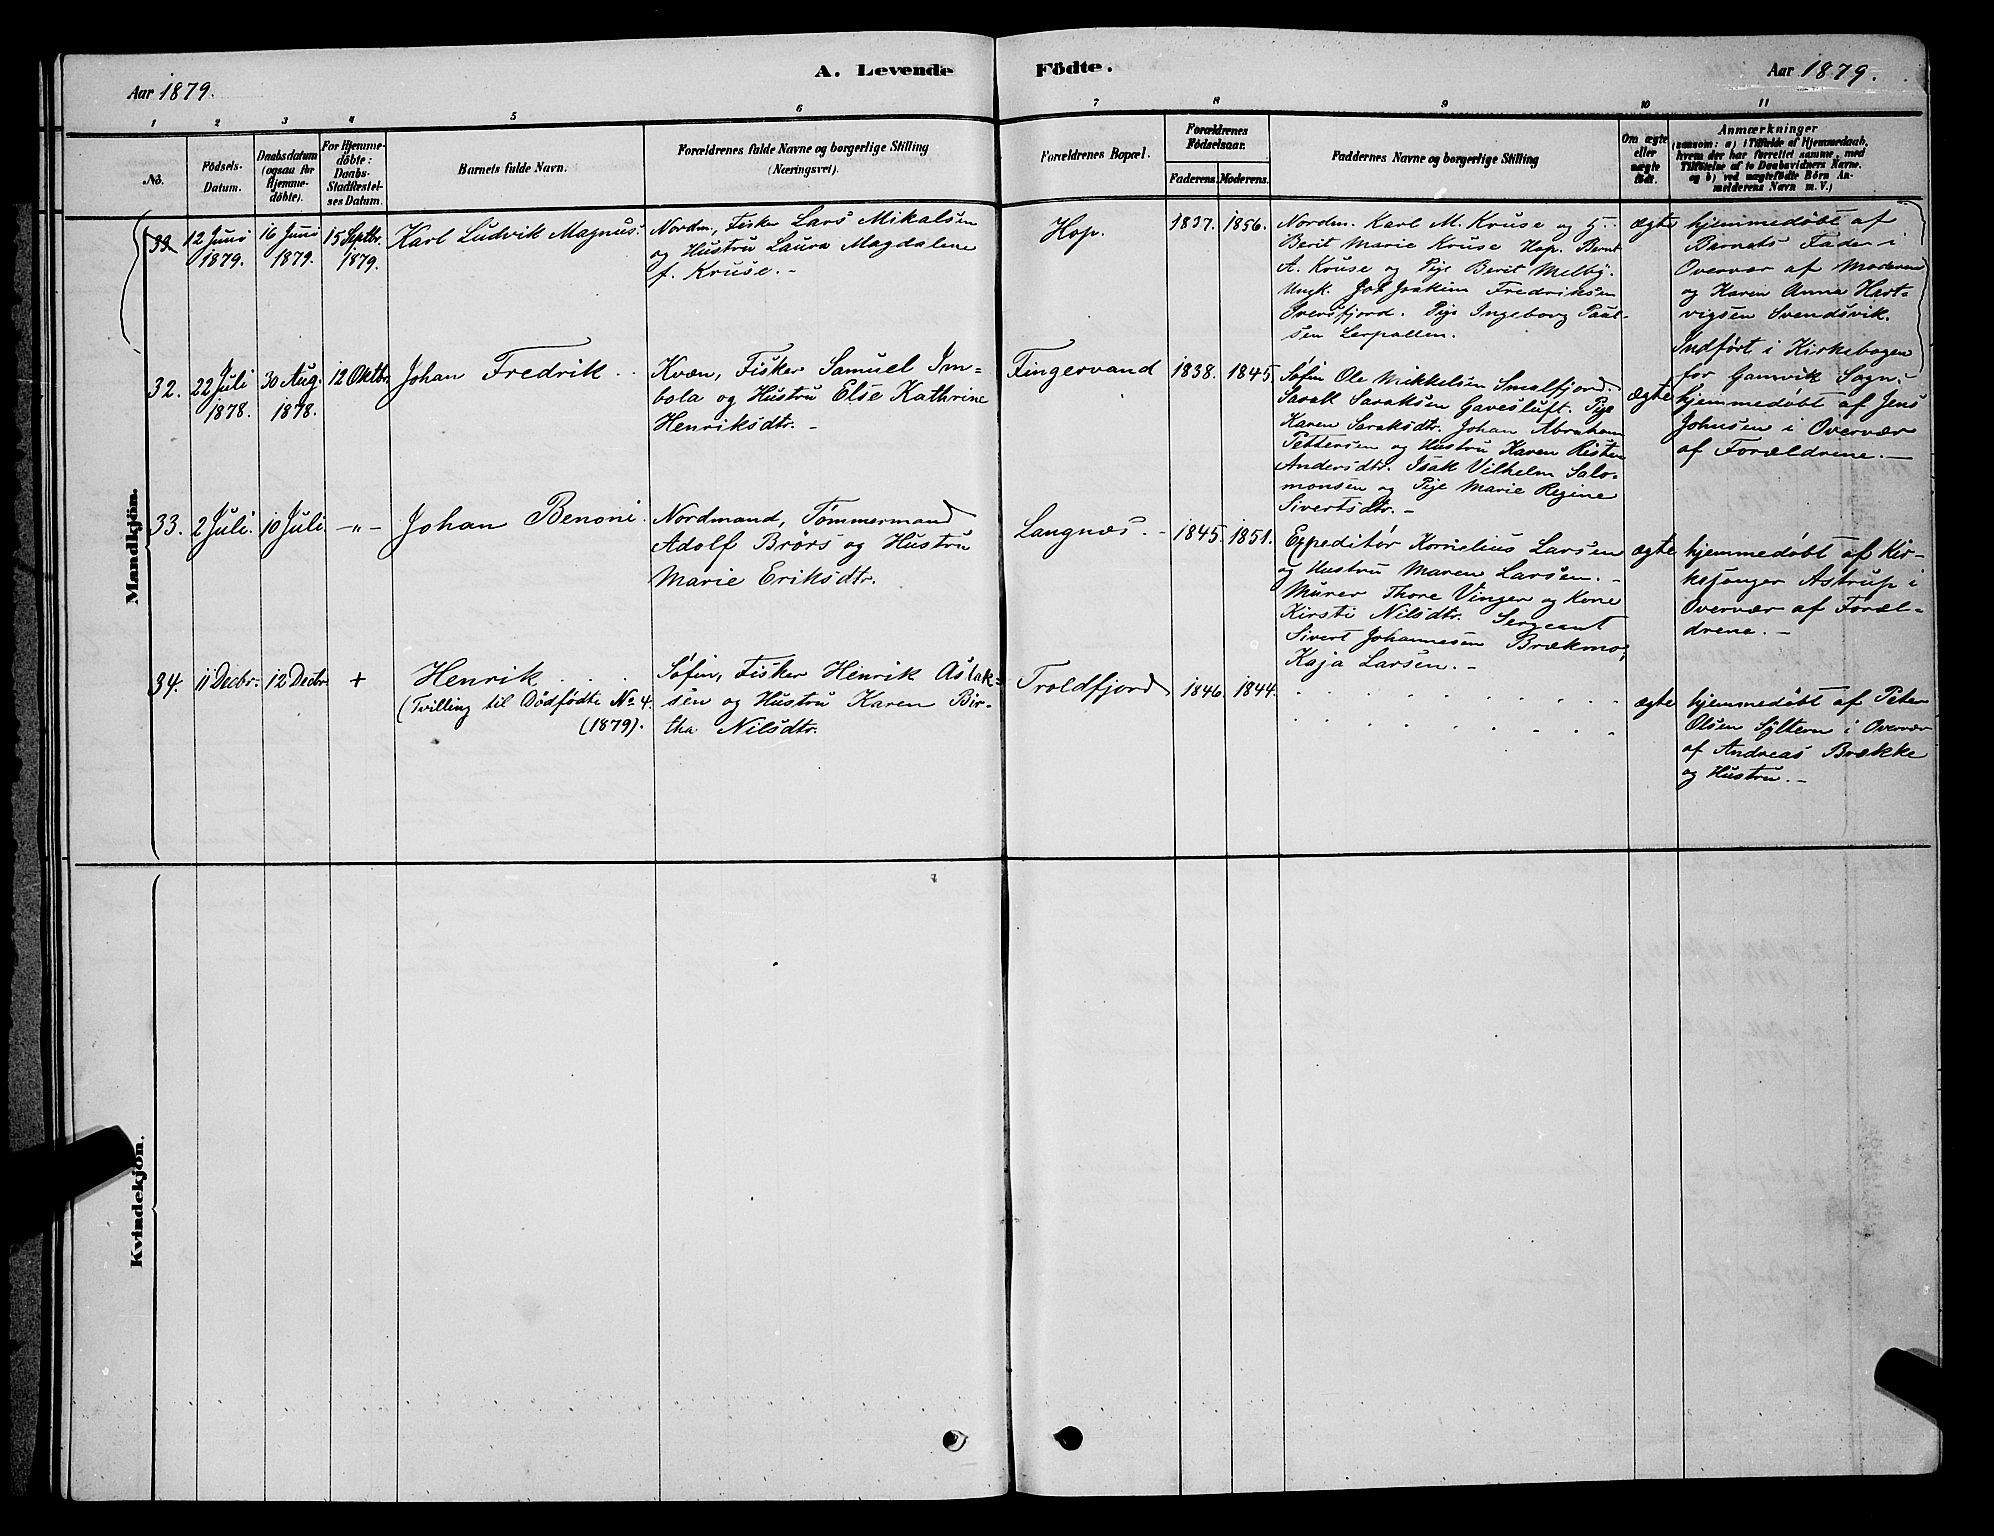 A. Levende Födte.
Aar 1879.
Aar 1879.
1 2 3 4 5 6 7 8 9 10 11
No.
Födsels-
Datum.
Daabsdatum
(ogsaa for
Hjemme-
döbte).
For Hjemme-
döbte:
Daabs-
Stadfæstel-
ses Datum.
Barnets fulde Navn.
Forældrenes fulde Navne og borgerlige Stilling
(Næringsvei).
Forældrenes Bopæl.
Forældrenes
Födselsaar.
Faderens. Moderens.
Faddernes Navne og borgerlige Stilling
Om ægte
eller
uægte
födt.
Anmærkninger
(saasom: a) i Tilfælde af Hjemmedaab,
hvem der har forrettet samme, med
Tilföielse af to Daabsvidners Navne.
og b) ved uægtefödte Börn An-
melderens Navn m. V.)
Mandkjön.
33.
12 Juni
1879.
16 Juni
1879.
15 Septbr.
1879.
Karl Ludvik Magnus.
Nordm., Fisker Lars Mikalsen
og Hustru Laura Magdalene
f. Kruse. -
Hop.
1837. 1856.
Nordm. Karl M. Kruse og
Berit Marie Kruse Hop. Bernt
A. Kruse og Pige Berit Melby.
Ungk. Joakim Fredriksen
Iversfjord. Pige Ingeborg Paul-
sen Lerpollen.
ægte
hjemmedøbt af
Barnets Fader i
Overvær af Moderen
og Karen Anna Hart-
vigsen Svendsvik.
Indført i Kirkebogen
for Gamvik Sogn.
32.
22 Juli
1878.
30 Aug.
1878.
12 Oktbr.
Johan Fredrik
Kvæn, Fisker Samuel Im-
bola og Hustru Else Kathrine
Henriksdtr. -
Fingervand
1838. 1845.
Søfin Ole Mikkelsen Smalfjord.
Sarak Saraksen Gavesluft. Pige
Karen Saraksdtr. Johan Abraham
Pettersen og Hustru Karen Risten
Andersdtr. Isak Vilhelm Salo-
monsen og Pige Marie Regine
Sivertsdtr. -
ægte
hjemmedøbt af Jens
Johnsen i Overvær
af Forældrene. -
33.
2 Juli.
10 Juli.
-"-
Johan Benoni.
Nordmand, Tømmermand
Adolf Brörs og Hustru
Marie Eriksdtr.
Langnæs. -
1845. 1851.
Expeditør Kornelius Larsen
og Hustru Maren Larsen. -
Murer Thore Vinger og Kone
Kirsti Nilsdtr. Sergeant
Sivert Johannesen Brækmo,
Kaja Larsen. -
ægte
hjemmedøbt af Kir-
kesanger Astrup i
Overvær af Foræl-
drene. -
34.
11 Decbr.
12 Decbr.
+
Henrik
(Tvilling til Dödfödte No 4.
(1879).
Søfin, Fisker Henrik Aslak-
sen og Hustru Karen Bir-
tha Nilsdtr.
Troldfjord
1846. 1844.
ægte
hjemmedøbt af Peter
Olsen Sÿltern i Overvær
af Andreas Brække
og Hustru. -
Kvindekjön.